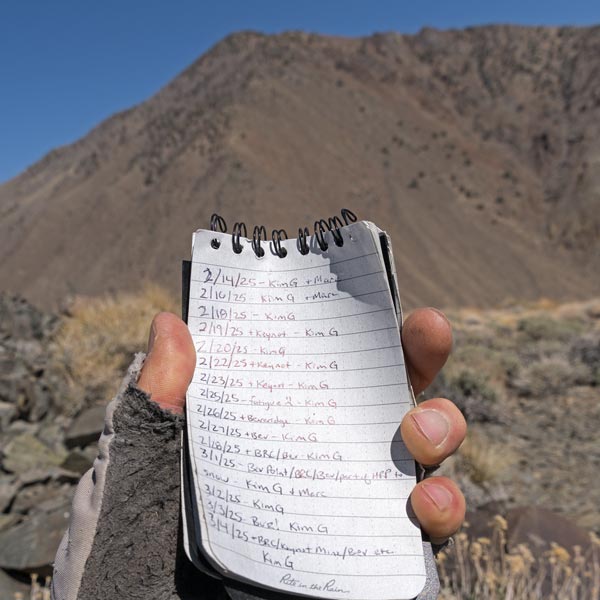 2/14/25 - Kim G + Marc
2/16/25 - Kim G + Marc
2/18/25 - Kim G
2/19/25 + Keynot - Kim G
2/20/25 - Kim G
2/22/25 + Keynot - Kim G
2/23/25 + Keynot - Kim G
2/25/25 - fatigue 2 - Kim G
2/26/25 + - Kim G
2/27/25 + Bev - Kim G
2/28/25 + BRC/Bev - Kim G
3/1/25 - Bev Point/BRC/Bev/part of HFP to
snow - Kim G + Marc
3/2/25 Kim G
3/3/25 Bug! Kim G
3/4/25 + BRC/Keynot Mine/Bev etc.
Kim G
Rite in the Rain